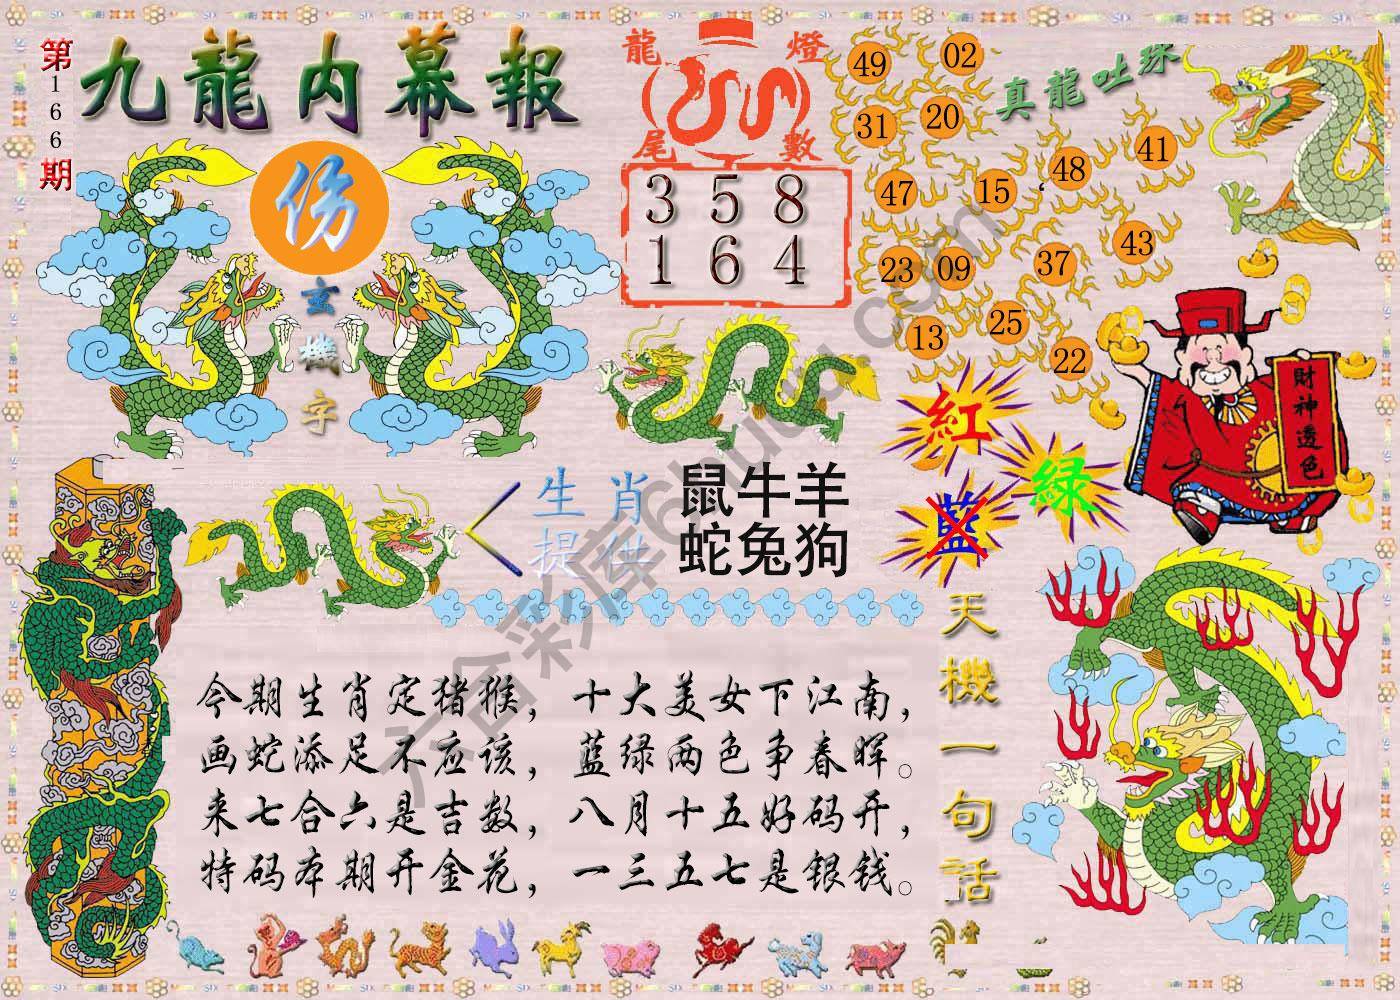 第166期
九龍内幕報
份
玄機字
龍燈尾數
3 5 8
1 6 4
真龍吐珠
49 02
31 20
47 15 48 41
23 09 37 43
13 25 22
財神透色
紅
綠
藍
生肖提供
鼠牛羊
蛇兔狗
天機一句話
今期生肖定猪猴，十大美女下江南，
画蛇添足不应该，蓝绿两色争春晖。
来七合六是吉数，八月十五好码开，
特码本期开金花，一三五七是银钱。